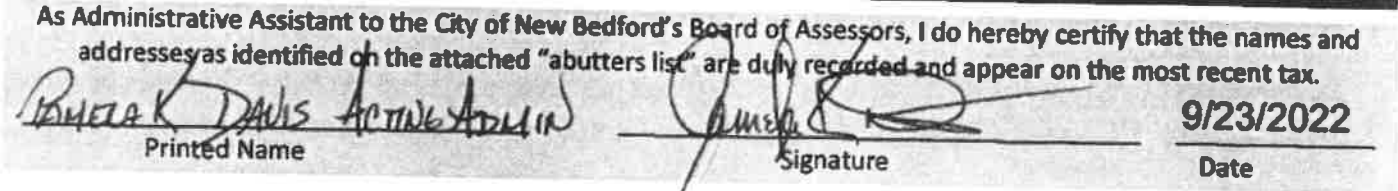 As Administrative Assistant to the City of New Bedford's Board of Assessors, I do hereby certify that the names and
addresses as identified on the attached "abutters list" are duly recorded and appear on the most recent tax.
PAMELA K DAVIS ACTING ADMIN Pamela K 9/23/2022
Printed Name Signature Date